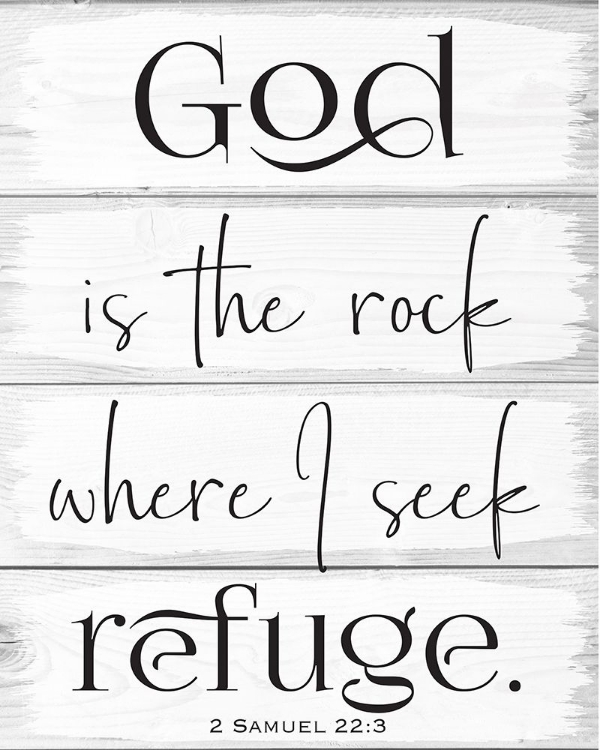 God
is the rock
where I seek
refuge.
2 SAMUEL 22:3